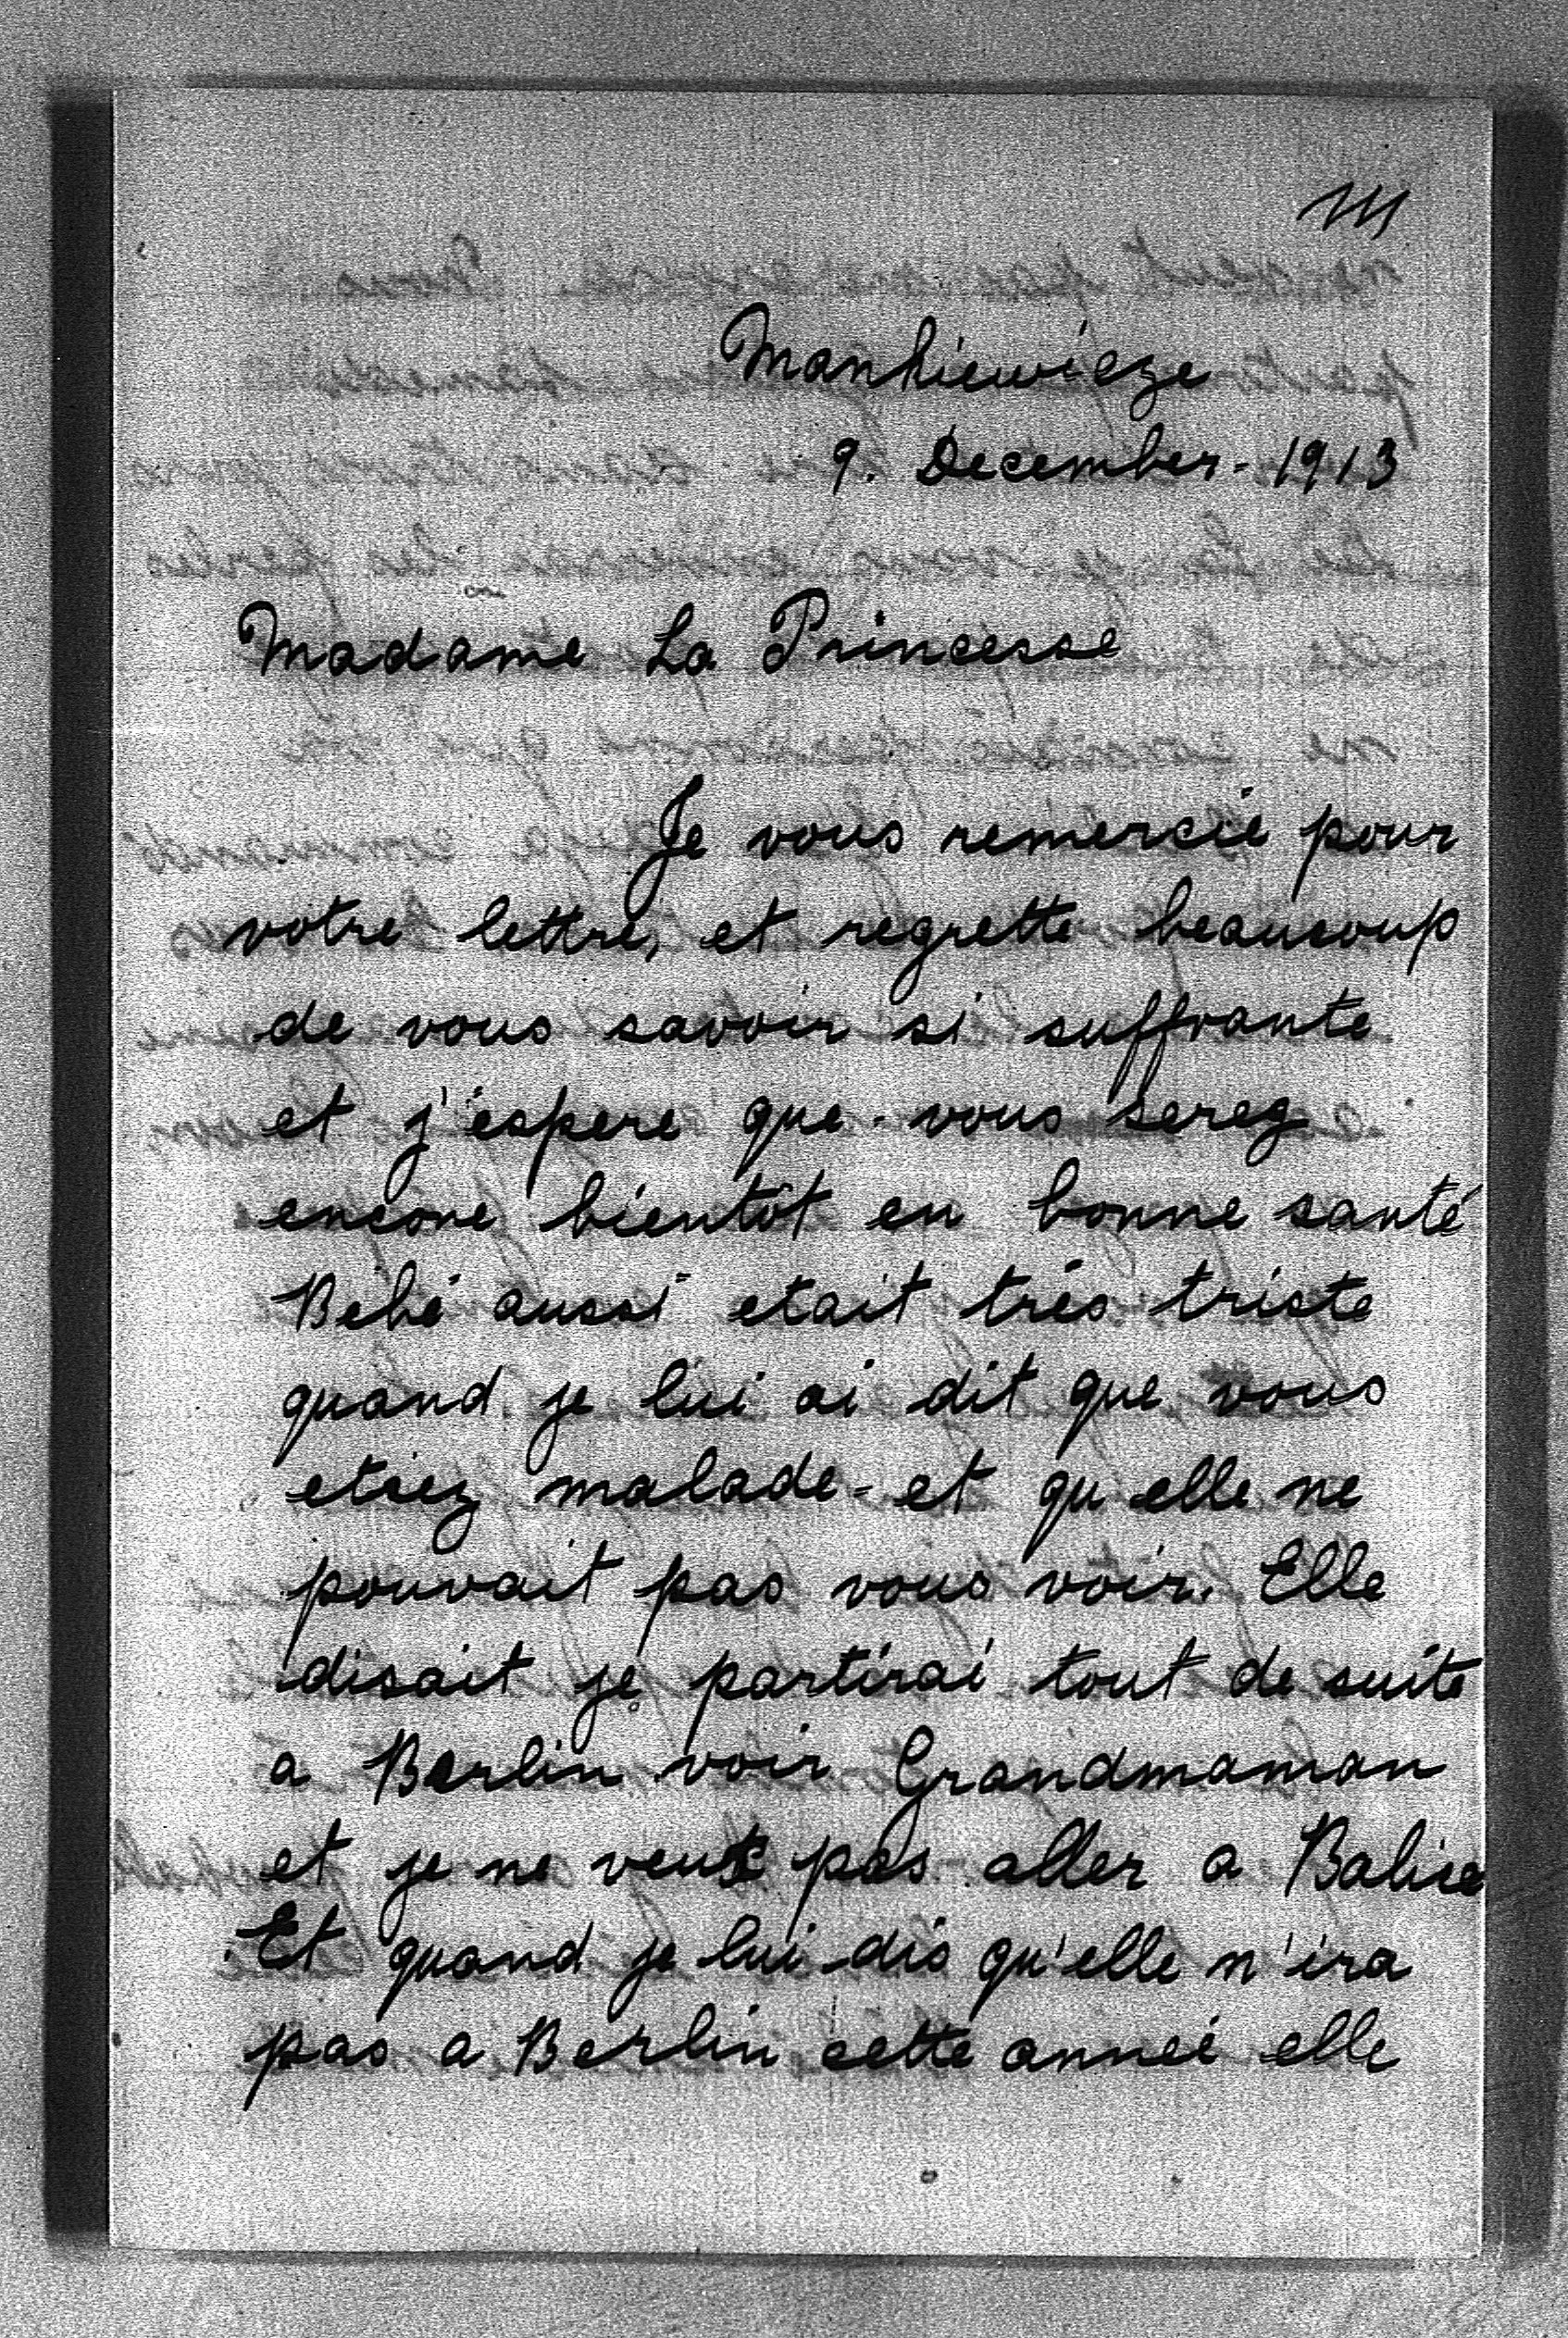 111
Mankiewicze
9. December - 1913
Madame La Princesse
Je vous remercie pour
votre lettre, et regrette beaucoup
de vous savoir si suffrante
et j'espere que vous serez
encore bientôt en bonne santé
Bébé aussi etait très triste
quand je lui ai dit que vous
etiez malade - et qu elle ne
pouvait pas vous voir. Elle
disait je partirai tout de suite
a Berlin voir Grandmaman
et je ne veux pas aller a Balice
Et quand je lui dis qu'elle n'ira
pas a Berlin cette anneé elle